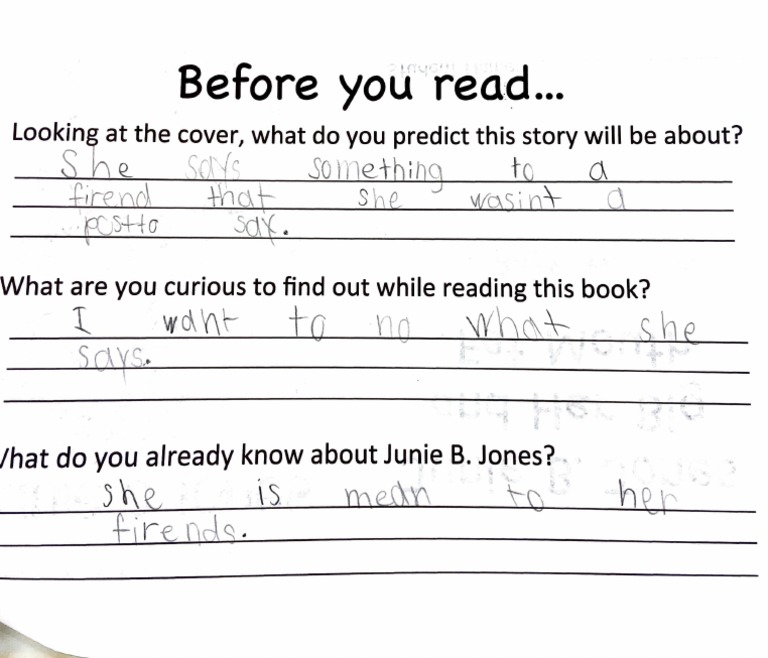 Before you read...
Looking at the cover, what do you predict this story will be about?
She says something to a
firend that she wasint a
postto say.
What are you curious to find out while reading this book?
I want to no what she
says.
What do you already know about Junie B. Jones?
she is mean to her
firends.